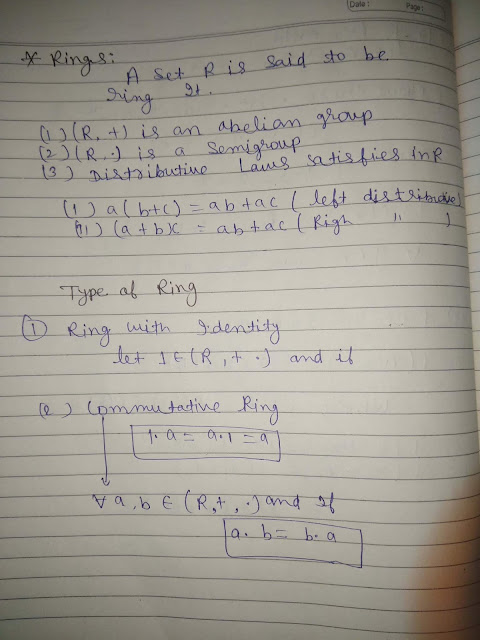 Date :
Page :
* Rings:
A Set R is said to be
ring If.
(1) (R, +) is an abelian group
(2) (R .) is a Semigroup
(3) Distributive Laws satisfies in R
(i) a(b+c) = ab+ac ( left distributive)
(ii) (a+b)c = ab+ac ( Righ " )
Type of Ring
① Ring with Identity
let 1 ∈ (R, + .) and if
(2) Commutative Ring
1. a = a.1 = a
∀ a, b ∈ (R, +, .) and If
a. b = b. a